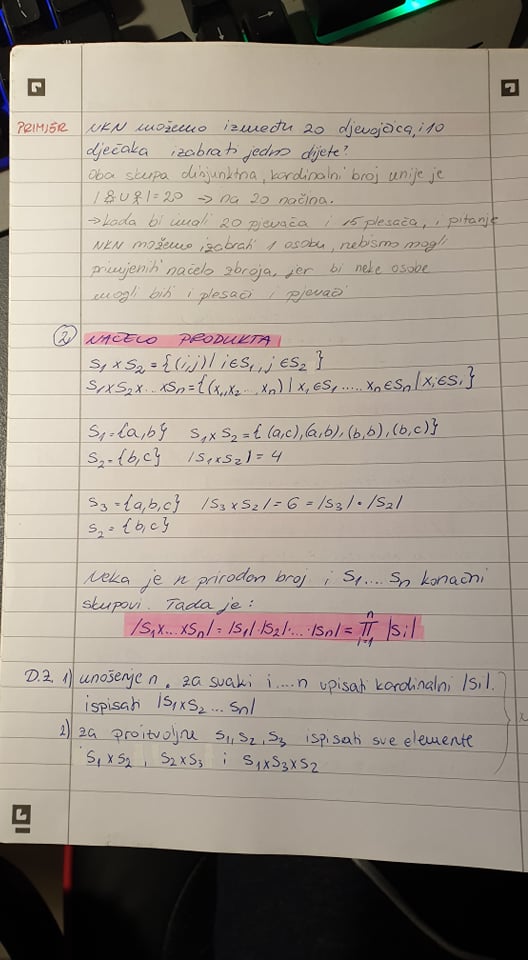 PRIMJER NKN možemo između 20 djevojčica, i 10
dječaka izabrati jedno dijete?
Oba skupa disjunktna, kardinalni broj unije je
| ∪ |=20 → na 20 načina.
→ kada bi imali 20 pjevača i 15 plesača, i pitanje
NKN možemo izabrati 1 osobu, nebismo mogli
primjeniti načelo zbroja, jer bi neke osobe
mogli biti i plesači i pjevači
② NAČELO PRODUKTA
S₁ × S₂ = {(i,j) | i∈S₁, j∈S₂ }
S₁×S₂×...×Sn = {(x₁,x₂...xn) | x₁∈S₁.....xn∈Sn | xi∈Si}
S₁={a,b} S₁×S₂ = {(a,c),(a,b),(b,b),(b,c)}
S₂={b,c} |S₁×S₂| = 4
S₃={a,b,c} |S₃×S₂| = 6 = |S₃|·|S₂|
S₂={b,c}
Neka je n prirodan broj i S₁....Sn konačni
skupovi. Tada je:
|S₁×...×Sn| = |S₁|·|S₂|·...·|Sn| = ∏ⁿᵢ₌₁ |Si|
D.Z. 1) unošenje n. za svaki i....n upisati kardinalni |Si|.
ispisati |S₁×S₂...Sn|
2) za proizvoljne S₁,S₂,S₃ ispisati sve elemente
S₁×S₂, S₂×S₃ i S₁×S₃×S₂